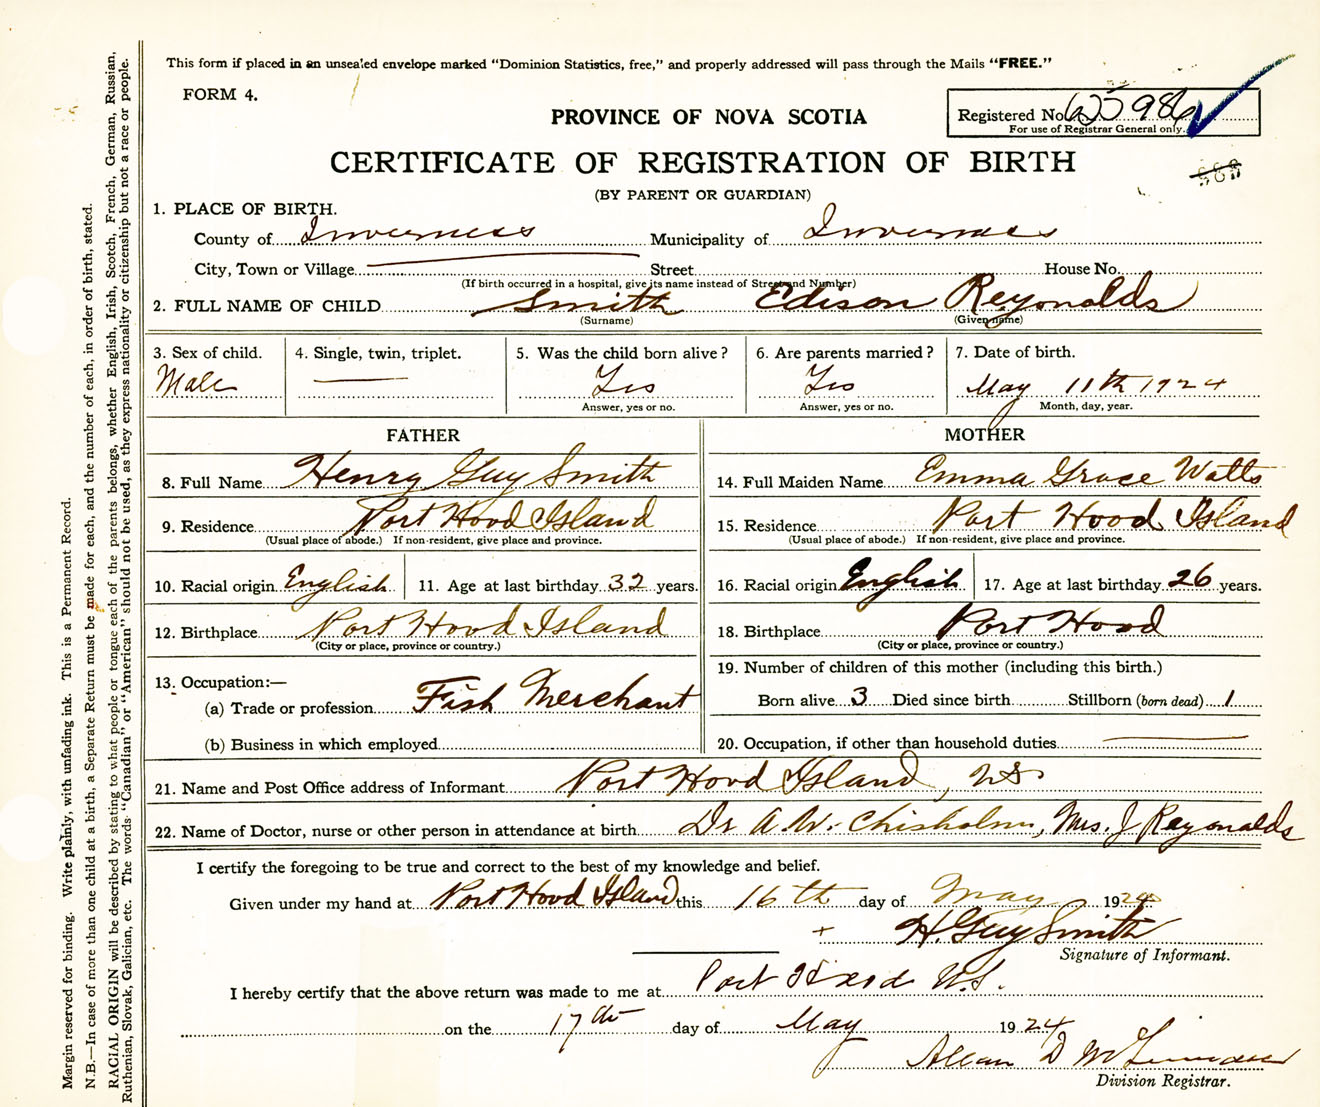 This form if placed in an unsealed envelope marked "Dominion Statistics, free," and properly addressed will pass through the Mails "FREE."
FORM 4.
PROVINCE OF NOVA SCOTIA
Registered No.
For use of Registrar General only.
CERTIFICATE OF REGISTRATION OF BIRTH
(BY PARENT OR GUARDIAN)
1. PLACE OF BIRTH.
County of Inverness Municipality of Inverness
City, Town or Village Street House No.
(If birth occurred in a hospital, give its name instead of Street and Number)
2. FULL NAME OF CHILD Smith Edison Reynolds
(Surname) (Given name)
3. Sex of child. 4. Single, twin, triplet. 5. Was the child born alive? 6. Are parents married? 7. Date of birth.
Male Yes Yes May 11th 1924
Answer, yes or no. Answer, yes or no. Month, day, year.
FATHER MOTHER
8. Full Name Henry Guy Smith 14. Full Maiden Name Emma Grace Watts
9. Residence Port Hood Island 15. Residence Port Hood Island
(Usual place of abode.) If non-resident, give place and province. (Usual place of abode.) If non-resident, give place and province.
10. Racial origin English 11. Age at last birthday 32 years. 16. Racial origin English 17. Age at last birthday 26 years.
12. Birthplace Port Hood Island 18. Birthplace Port Hood
(City or place, province or country.) (City or place, province or country.)
13. Occupation:— 19. Number of children of this mother (including this birth.)
(a) Trade or profession Fish Merchant Born alive 3 Died since birth Stillborn (born dead) 1
(b) Business in which employed 20. Occupation, if other than household duties
21. Name and Post Office address of Informant Port Hood Island, NS
22. Name of Doctor, nurse or other person in attendance at birth Dr A. W. Chisholm, Mrs. J Reyonalds
I certify the foregoing to be true and correct to the best of my knowledge and belief.
Given under my hand at Port Hood Island this 16th day of May 1924
+ H. Guy Smith
Signature of Informant.
I hereby certify that the above return was made to me at Port Hood N.S.
on the 17th day of May 1924
Allan D
Division Registrar.
Margin reserved for binding. Write plainly, with unfading ink. This is a Permanent Record.
N.B.—In case of more than one child at a birth, a Separate Return must be made for each, and the number of each, in order of birth, stated.
RACIAL ORIGIN will be described by stating to what people or tongue each of the parents belongs, whether English, Irish, Scotch, French, German, Russian,
Ruthenian, Slovak, Galician, etc. The words "Canadian" or "American" should not be used, as they express nationality or citizenship but not a race or people.